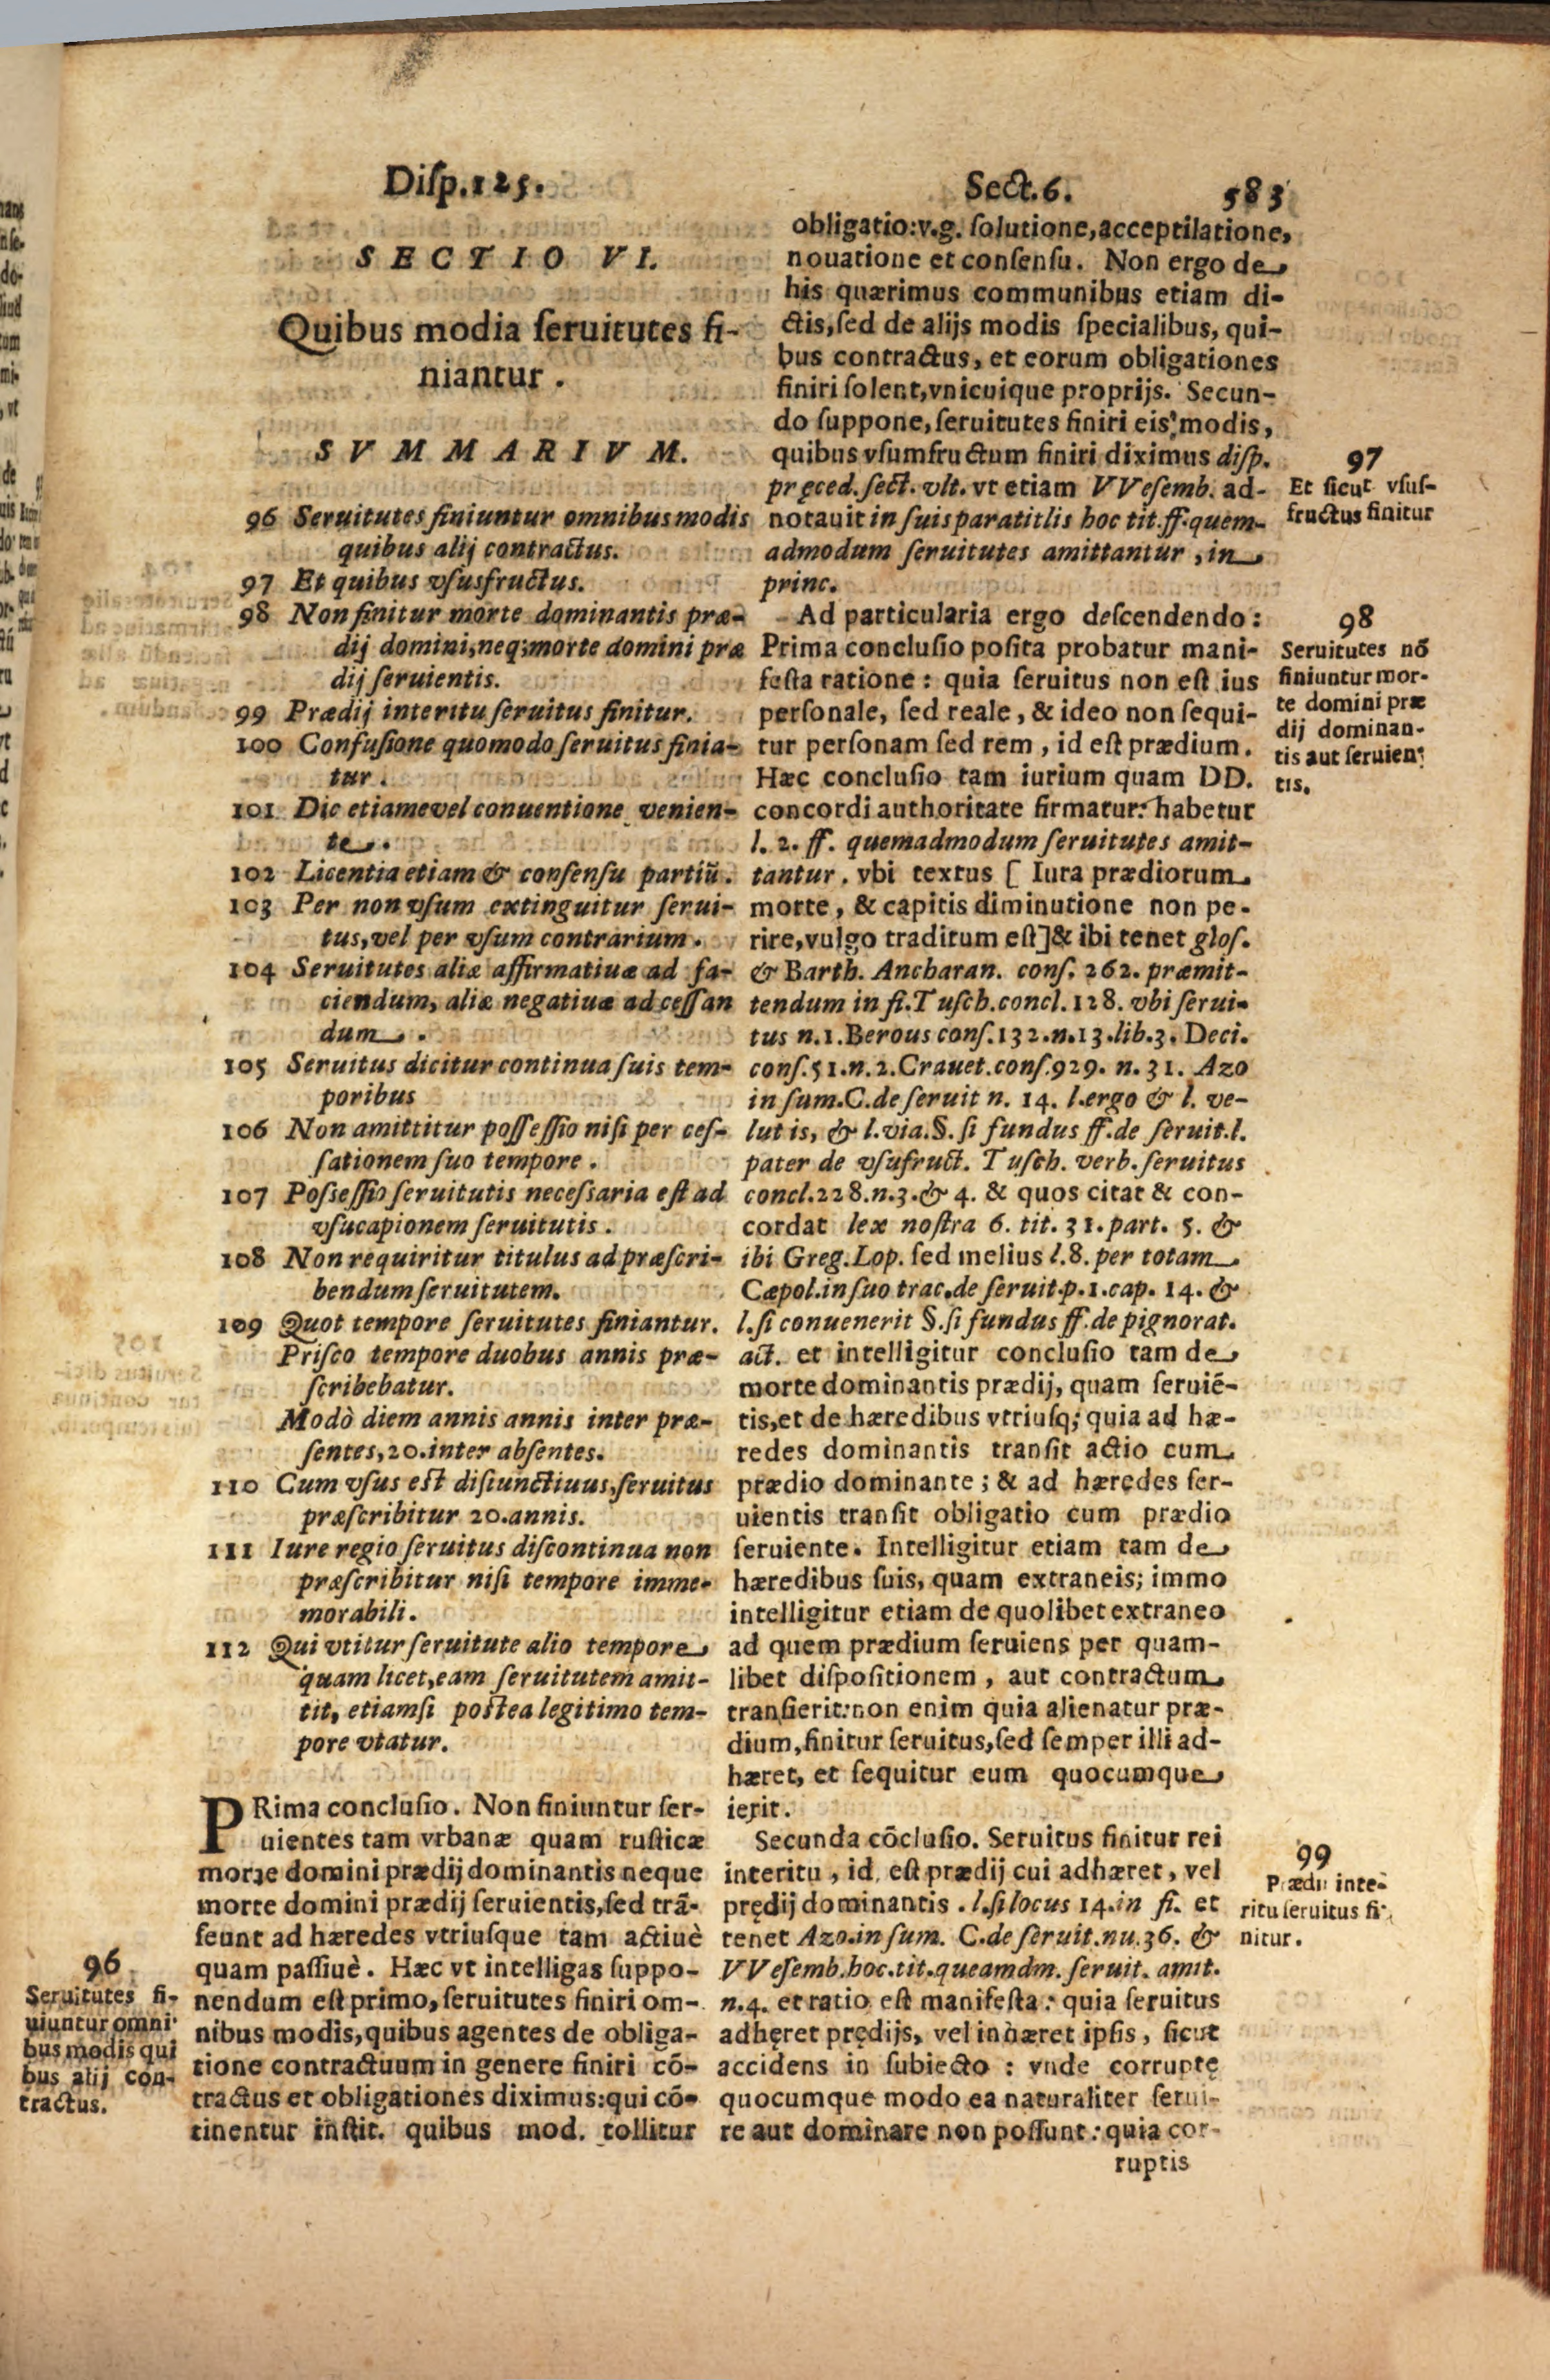 Diſp.125. Sect.6. 583
SECTIO VI.
Quibus modia ſeruitutes fi-
niantur.
SVMMARIVM.
96 Seruitutes finiuntur omnibus modis
quibus alij contractus.
97 Et quibus vſusfructus.
98 Non finitur morte dominantis præ-
dij domini, neq; morte domini præ
dij ſeruientis.
99 Prædij interitu ſeruitus finitur.
100 Confuſione quomodo ſeruitus finia-
tur.
101 Dic etiamevel conuentione venien-
te.
102 Licentia etiam & conſenſu partiũ.
103 Per non vſum extinguitur ſerui-
tus, vel per vſum contrarium.
104 Seruitutes aliæ affirmatiuæ ad fa-
ciendum, aliæ negatiuæ ad ceſſan
dum.
105 Seruitus dicitur continua ſuis tem-
poribus
106 Non amittitur poſſeſſio niſi per ceſ-
ſationem ſuo tempore.
107 Poſseſſio ſeruitutis neceſsaria eſt ad
vſucapionem ſeruitutis.
108 Non requiritur titulus ad præſcri-
bendum ſeruitutem.
109 Quot tempore ſeruitutes finiantur.
Priſco tempore duobus annis præ-
ſcribebatur.
Modò diem annis annis inter præ-
ſentes, 20. inter abſentes.
110 Cum vſus eſt diſiunctiuus, ſeruitus
præſcribitur 20. annis.
111 Iure regio ſeruitus diſcontinua non
præſcribitur niſi tempore imme-
morabili.
112 Qui vtitur ſeruitute alio tempore
quam licet, eam ſeruitutem amit-
tit, etiamſi poſtea legitimo tem-
pore vtatur.
PRima concluſio. Non finiuntur ſer-
uientes tam vrbanæ quam ruſticæ
morte domini prædij dominantis neque
morte domini prædij ſeruientis, ſed trã-
ſeunt ad hæredes vtriuſque tam actiuè
quam paſſiuè. Hæc vt intelligas ſuppo-
nendum eſt primo, ſeruitutes finiri om-
nibus modis, quibus agentes de obliga-
tione contractuum in genere finiri cõ-
tractus et obligationes diximus: qui cõ-
tinentur inſtit. quibus mod. tollitur
96
Seruitutes fi-
uiuntur omni
bus modis qui
bus alij con-
tractus.
obligatio: v.g. ſolutione, acceptilatione,
nouatione et conſenſu. Non ergo de
his quærimus communibus etiam di-
ctis, ſed de alijs modis ſpecialibus, qui-
bus contractus, et eorum obligationes
finiri ſolent, vnicuique proprijs. Secun-
do ſuppone, ſeruitutes finiri eis modis,
quibus vſumfructum finiri diximus diſp.
pręced. ſect. vlt. vt etiam VVeſemb. ad-
notauit in ſuis paratitlis hoc tit. ff. quem-
admodum ſeruitutes amittantur, in
princ.
Ad particularia ergo deſcendendo:
Prima concluſio poſita probatur mani-
feſta ratione: quia ſeruitus non eſt ius
perſonale, ſed reale, & ideo non ſequi-
tur perſonam ſed rem, id eſt prædium.
Hæc concluſio tam iurium quam DD.
concordi authoritate firmatur: habetur
l. 2. ff. quemadmodum ſeruitutes amit-
tantur. vbi textus [ Iura prædiorum
morte, & capitis diminutione non pe-
rire, vulgo traditum eſt] & ibi tenet gloſ.
& Barth. Ancharan. conſ. 262. præmit-
tendum in fi. Tuſch. concl. 128. vbi ſerui-
tus n.1. Berous conſ. 132. n.13. lib.3. Deci.
conſ. 51. n. 2. Crauet. conſ. 929. n. 31. Azo
in ſum. C. de ſeruit n. 14. l. ergo & l. ve-
lut is, & l. via. §. ſi fundus ff. de ſeruit. l.
pater de vſufruct. Tuſch. verb. ſeruitus
concl. 228. n.3. & 4. & quos citat & con-
cordat lex noſtra 6. tit. 31. part. 5. &
ibi Greg. Lop. ſed melius l.8. per totam
Cæpol. in ſuo trac. de ſeruit. p.1. cap. 14. &
l. ſi conuenerit §. ſi fundus ff. de pignorat.
act. et intelligitur concluſio tam de
morte dominantis prædij, quam ſeruiẽ-
tis, et de hæredibus vtriuſq; quia ad hæ-
redes dominantis tranſit actio cum
prædio dominante; & ad hæredes ſer-
uientis tranſit obligatio cum prædio
ſeruiente. Intelligitur etiam tam de
hæredibus ſuis, quam extraneis; immo
intelligitur etiam de quolibet extraneo
ad quem prædium ſeruiens per quam-
libet diſpoſitionem, aut contractum
tranſierit: non enim quia alienatur præ-
dium, finitur ſeruitus, ſed ſemper illi ad-
hæret, et ſequitur eum quocumque
ierit.
Secunda cõcluſio. Seruitus finitur rei
interitu, id eſt prædij cui adhæret, vel
prędij dominantis. l. ſi locus 14. in fi. et
tenet Azo. in ſum. C. de ſeruit. nu. 36. &
VVeſemb. hoc. tit. queamdm. ſeruit. amit.
n.4. et ratio eſt manifeſta: quia ſeruitus
adhęret prędijs, vel inhæret ipſis, ſicut
accidens in ſubiecto: vnde corruptę
quocumque modo ea naturaliter ſerui-
re aut dominare non poſſunt: quia cor-
ruptis
97
Et ſicut vſuſ-
fructus finitur
98
Seruitutes nõ
finiuntur mor-
te domini præ
dij dominan-
tis aut ſeruien
tis.
99
Prædii inte-
ritu ſeruitus fi
nitur.